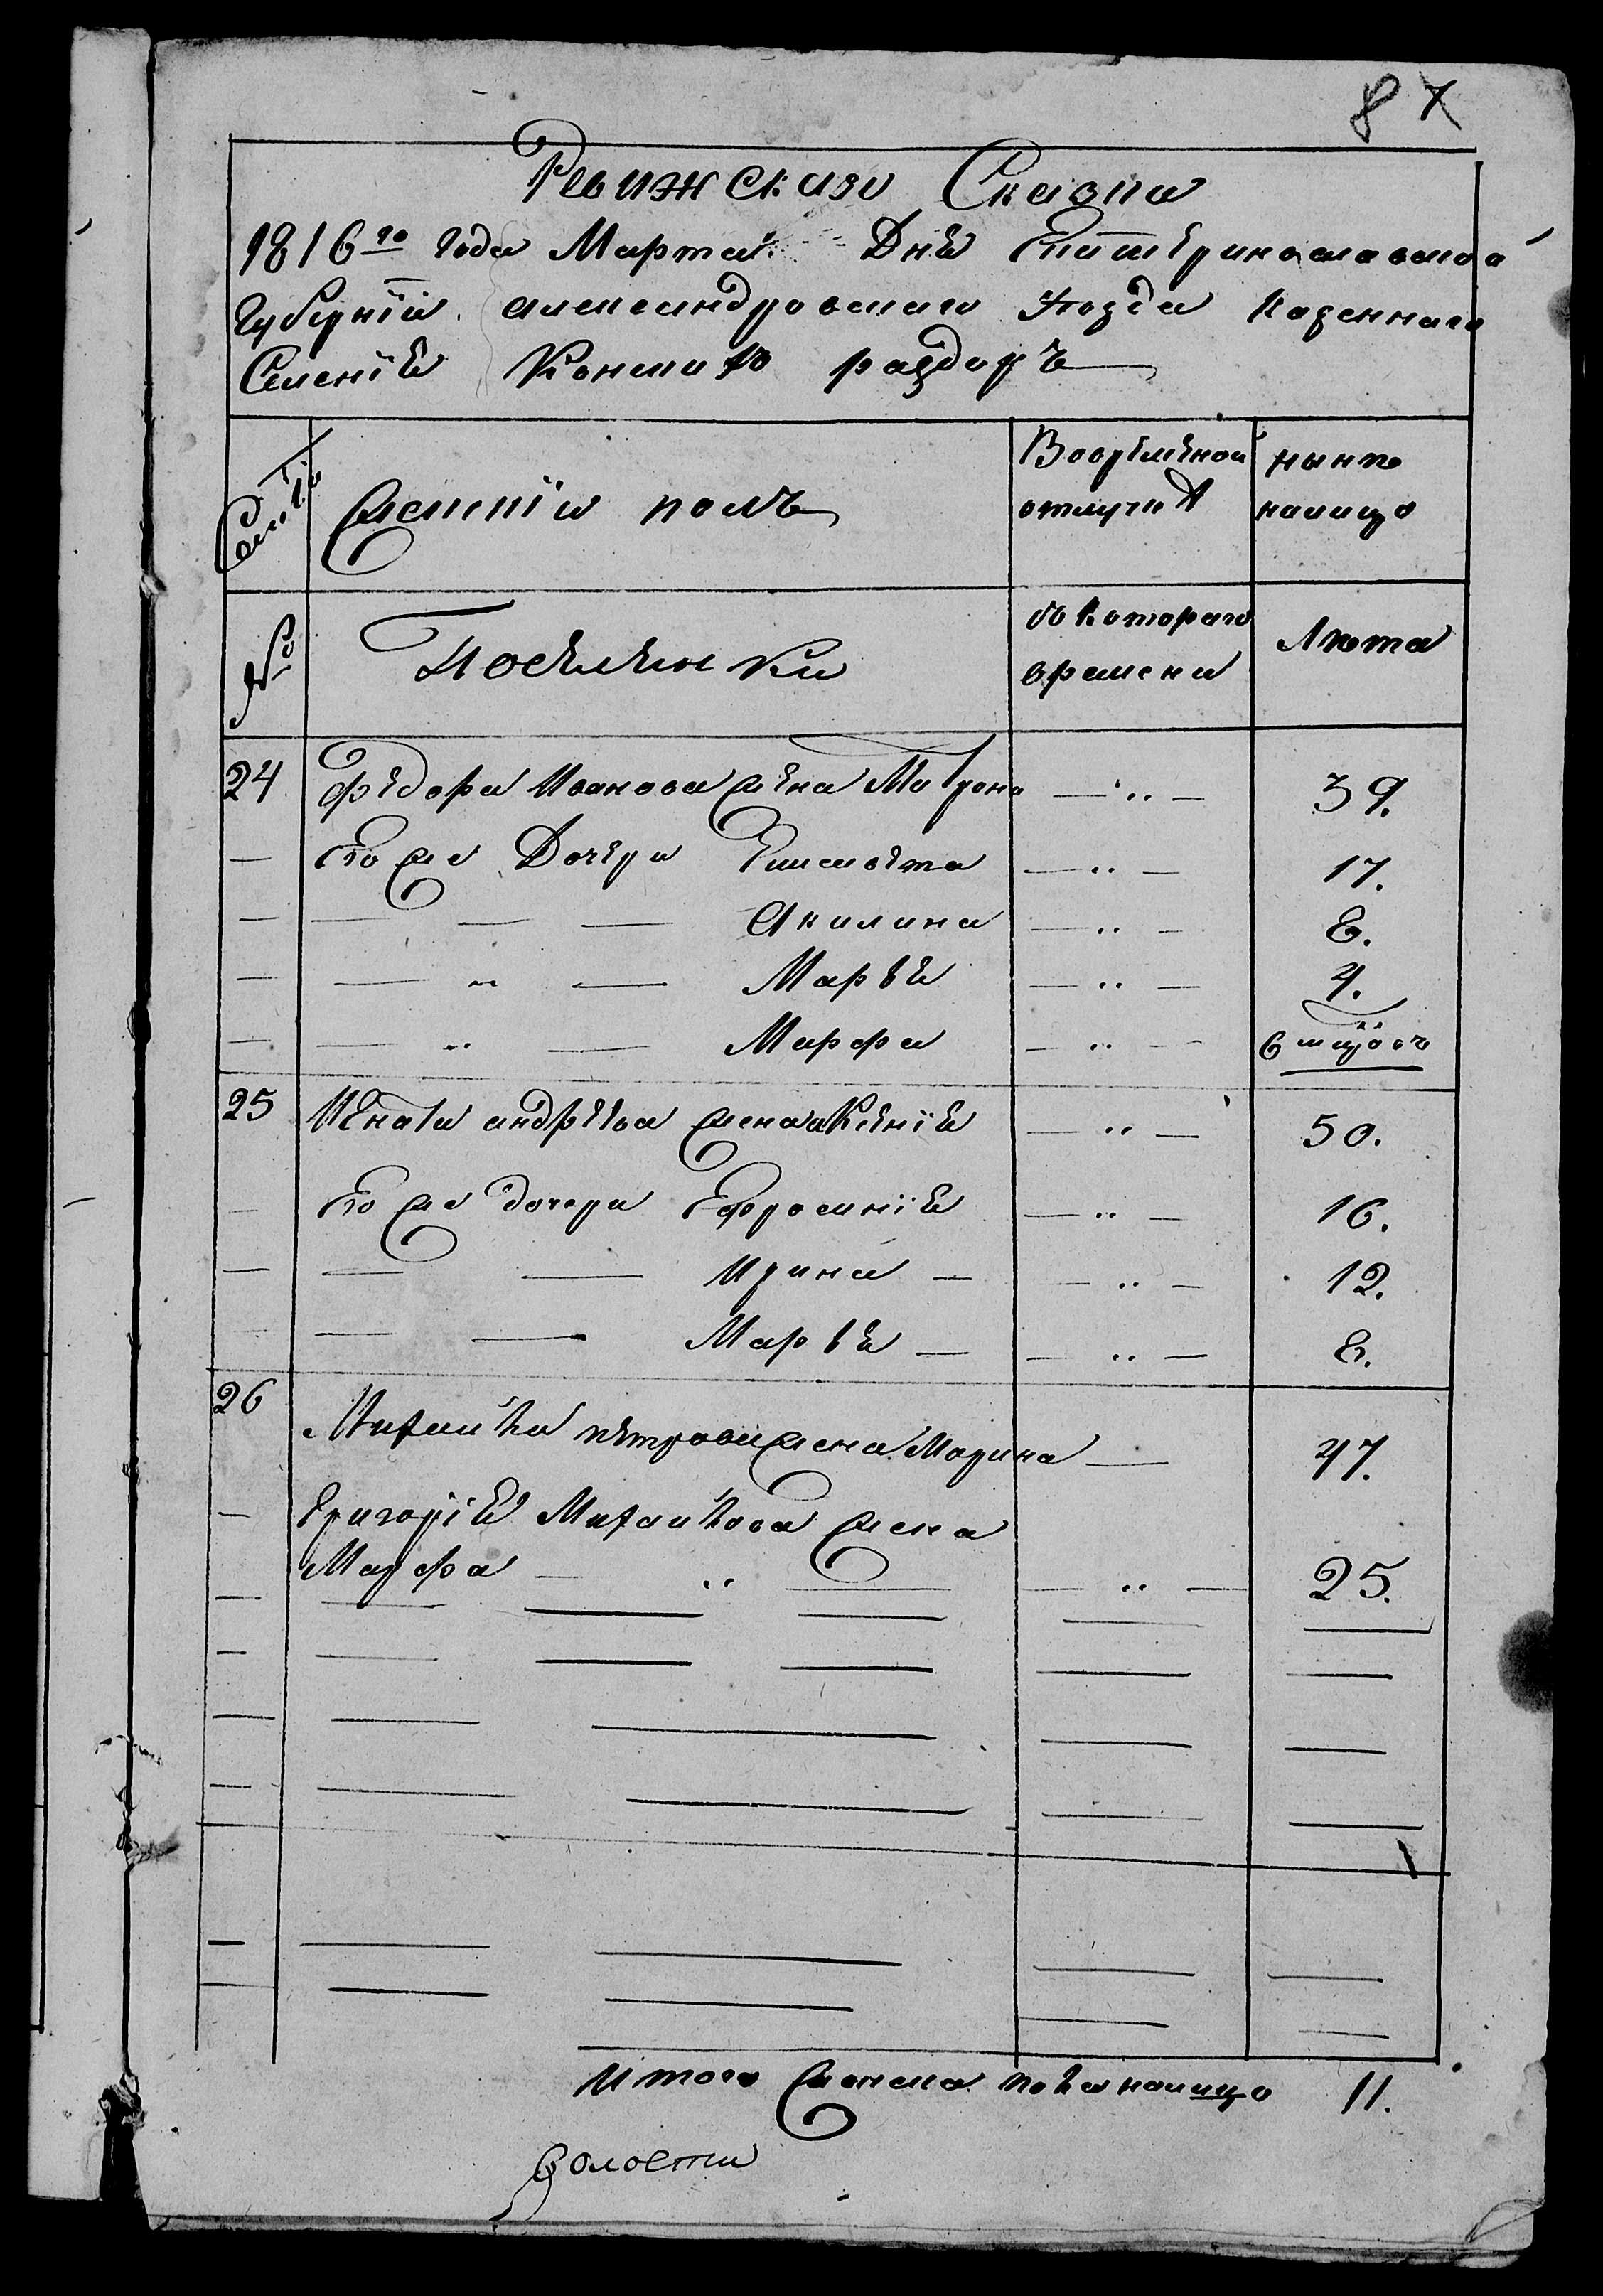 87
Ревижская Сказка
1816го года Марта дня Екатеринославской
Губернiи Александровскаго уѣзда казеннаго
Селенiя Конскихъ раздоръ
Семьи
Женскiй полъ
Во временной
отлучкѣ
нынѣ
налицо
№
Поселянки
съ котораго
времени
Лѣта
24 Федора Иванова жена Матрона — " — 39.
— Его же Дочери Елисавета — " — 17.
— — — — Акилина — " — 8.
— — " — Марья — " — 4.
— — " — Марфа — " — 6 мцовъ
25 Игната андреева жена Ксенiя — " — 50.
— Его же дочери Ефросинiя — " — 16.
— — — Ирина — — " — 12.
— — — Марья — — " — 8.
26 Михайла петрова жена Марина — 47.
— Григорiя Михайлова жена
Марфа — " — — " — 25.
Итого женска пола налицо 11.
Волости